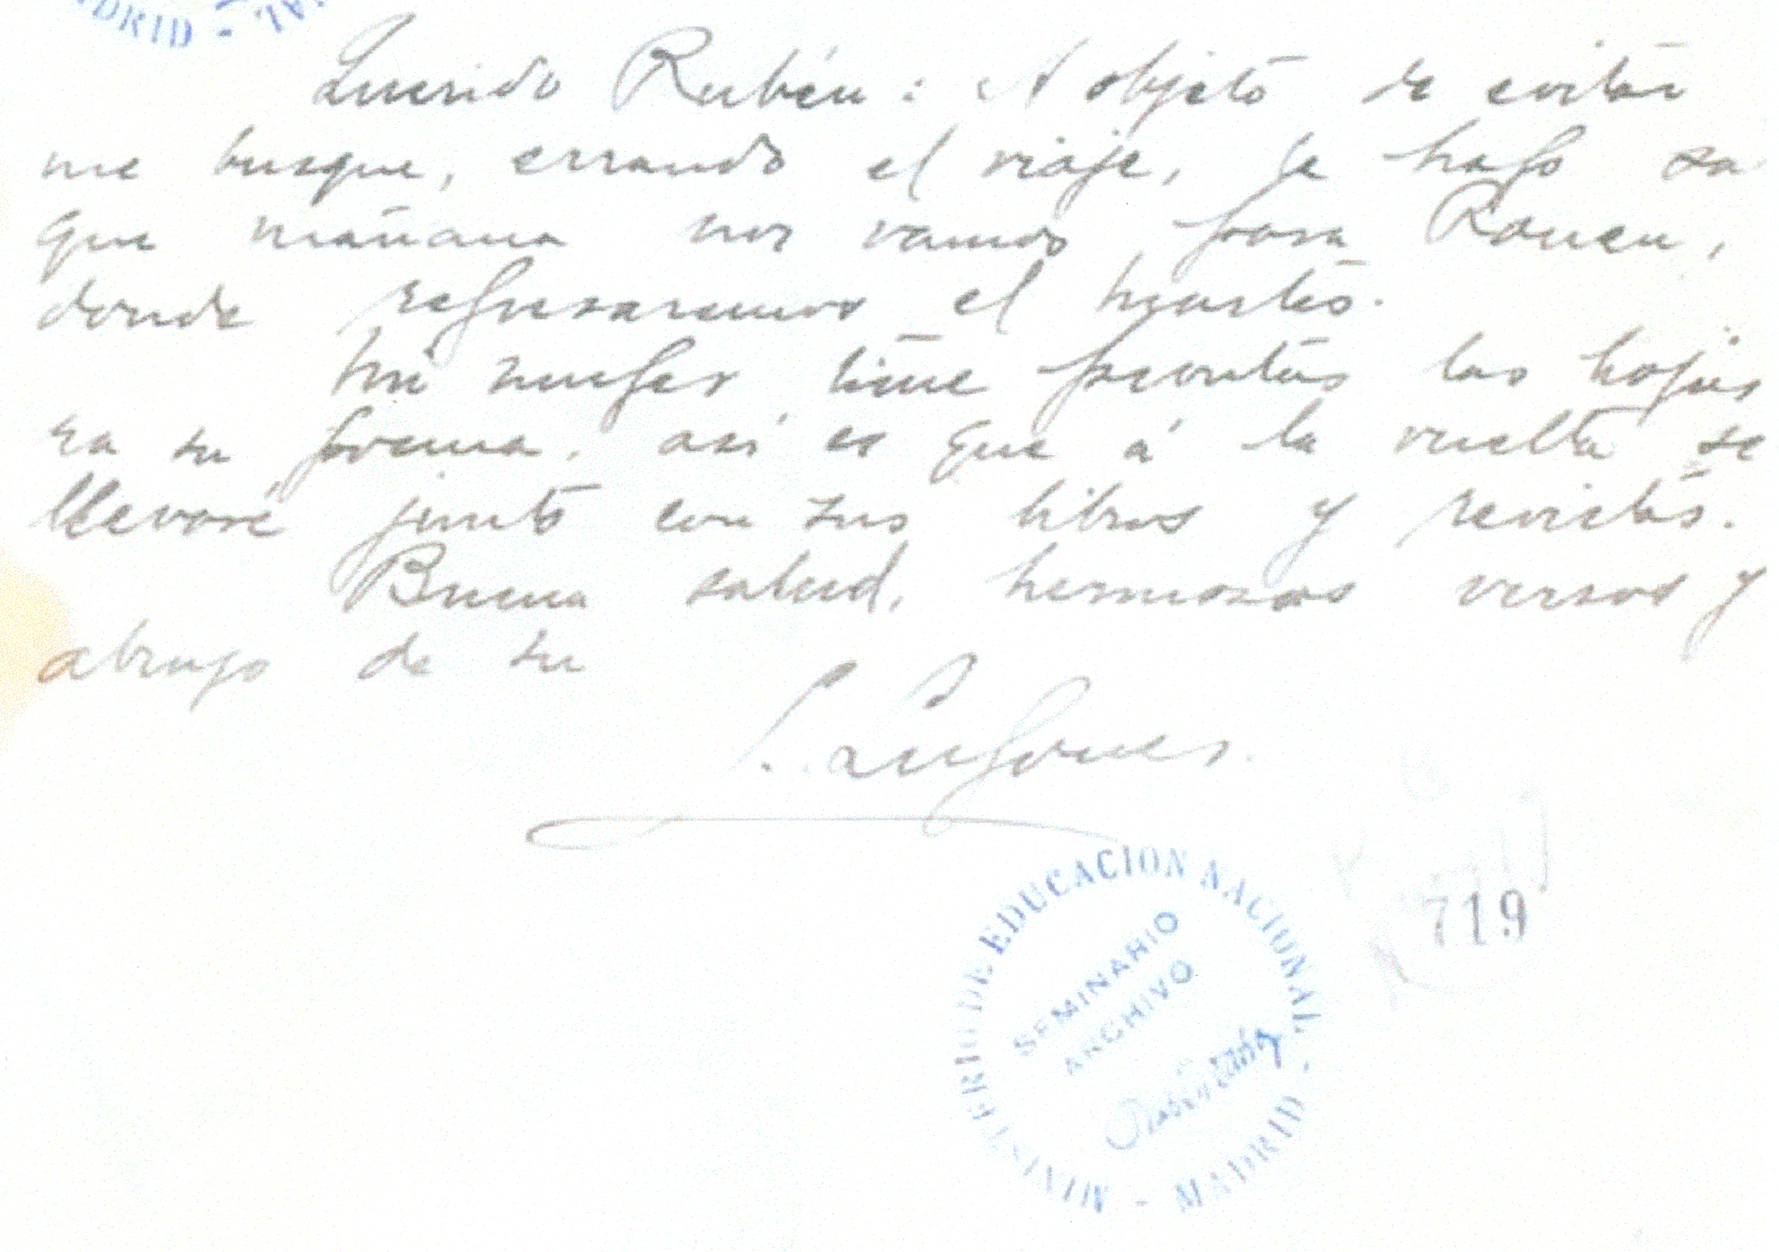 MADRID - NAL
Querido Rubén: A objeto de evitar
me busque, errando el viaje, le hago sa
que mañana nos vamos para Rouen,
donde regresaremos el martes.
Mi mujer tiene prontas las hojas
ra su forma, así es que á la vuelta se
llevaré junto con sus libros y revistas.
Buena salud, hermosos versos y
abrazo de su
L. Lugones.
719
MINISTERIO DE EDUCACION NACIONAL - MADRID -
SEMINARIO
ARCHIVO
Rubén Darío